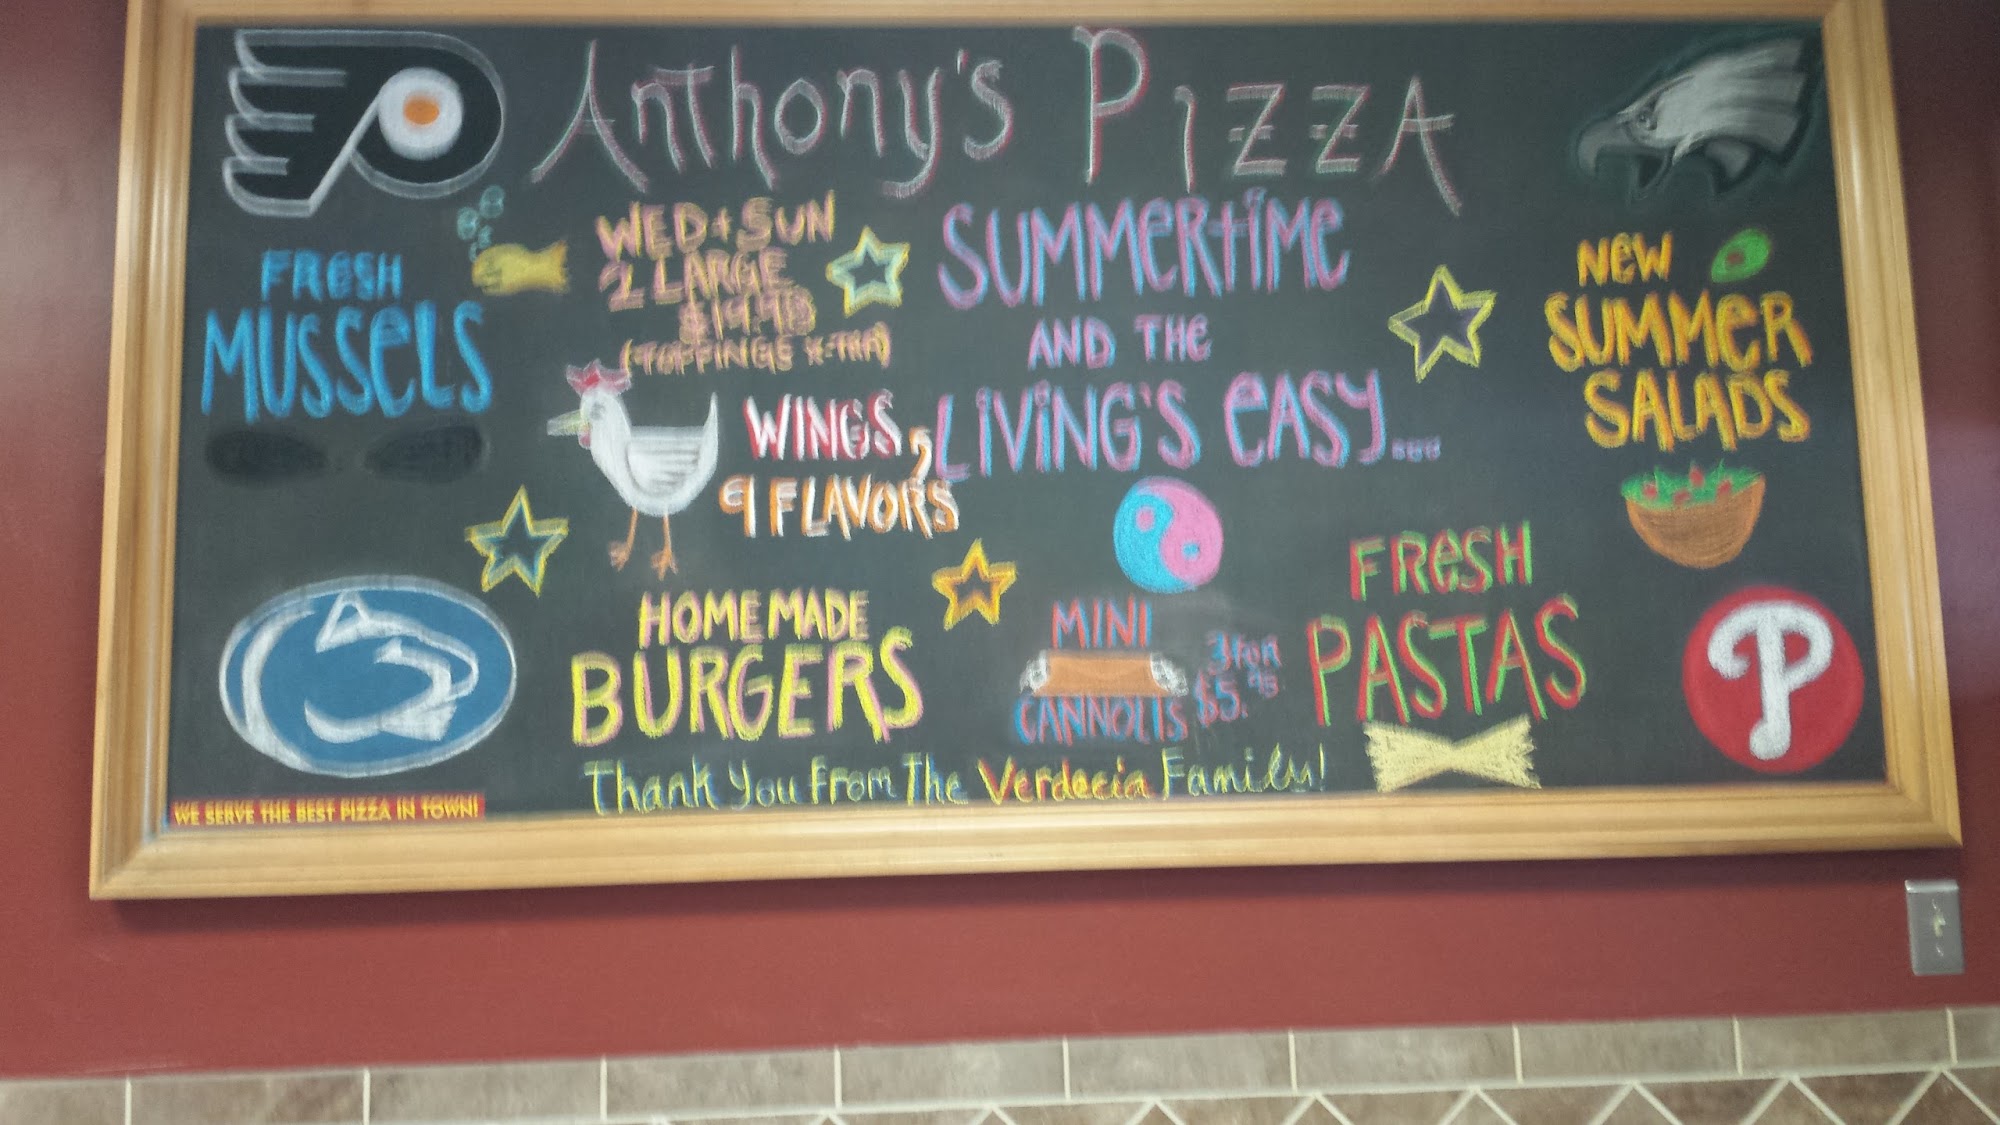 Anthony's Pizza
FRESH
MUSSELS
WED + SUN
2 LARGE
(TOPPINGS X-TRA)
SUMMERTIME
AND THE
LIVING'S EASY...
NEW
SUMMER
SALADS
WINGS,
9 FLAVORS
HOMEMADE
BURGERS
MINI
CANNOLIS
3 FOR
$5.
FRESH
PASTAS
P
Thank You From The Verdecia Family!
WE SERVE THE BEST PIZZA IN TOWN!